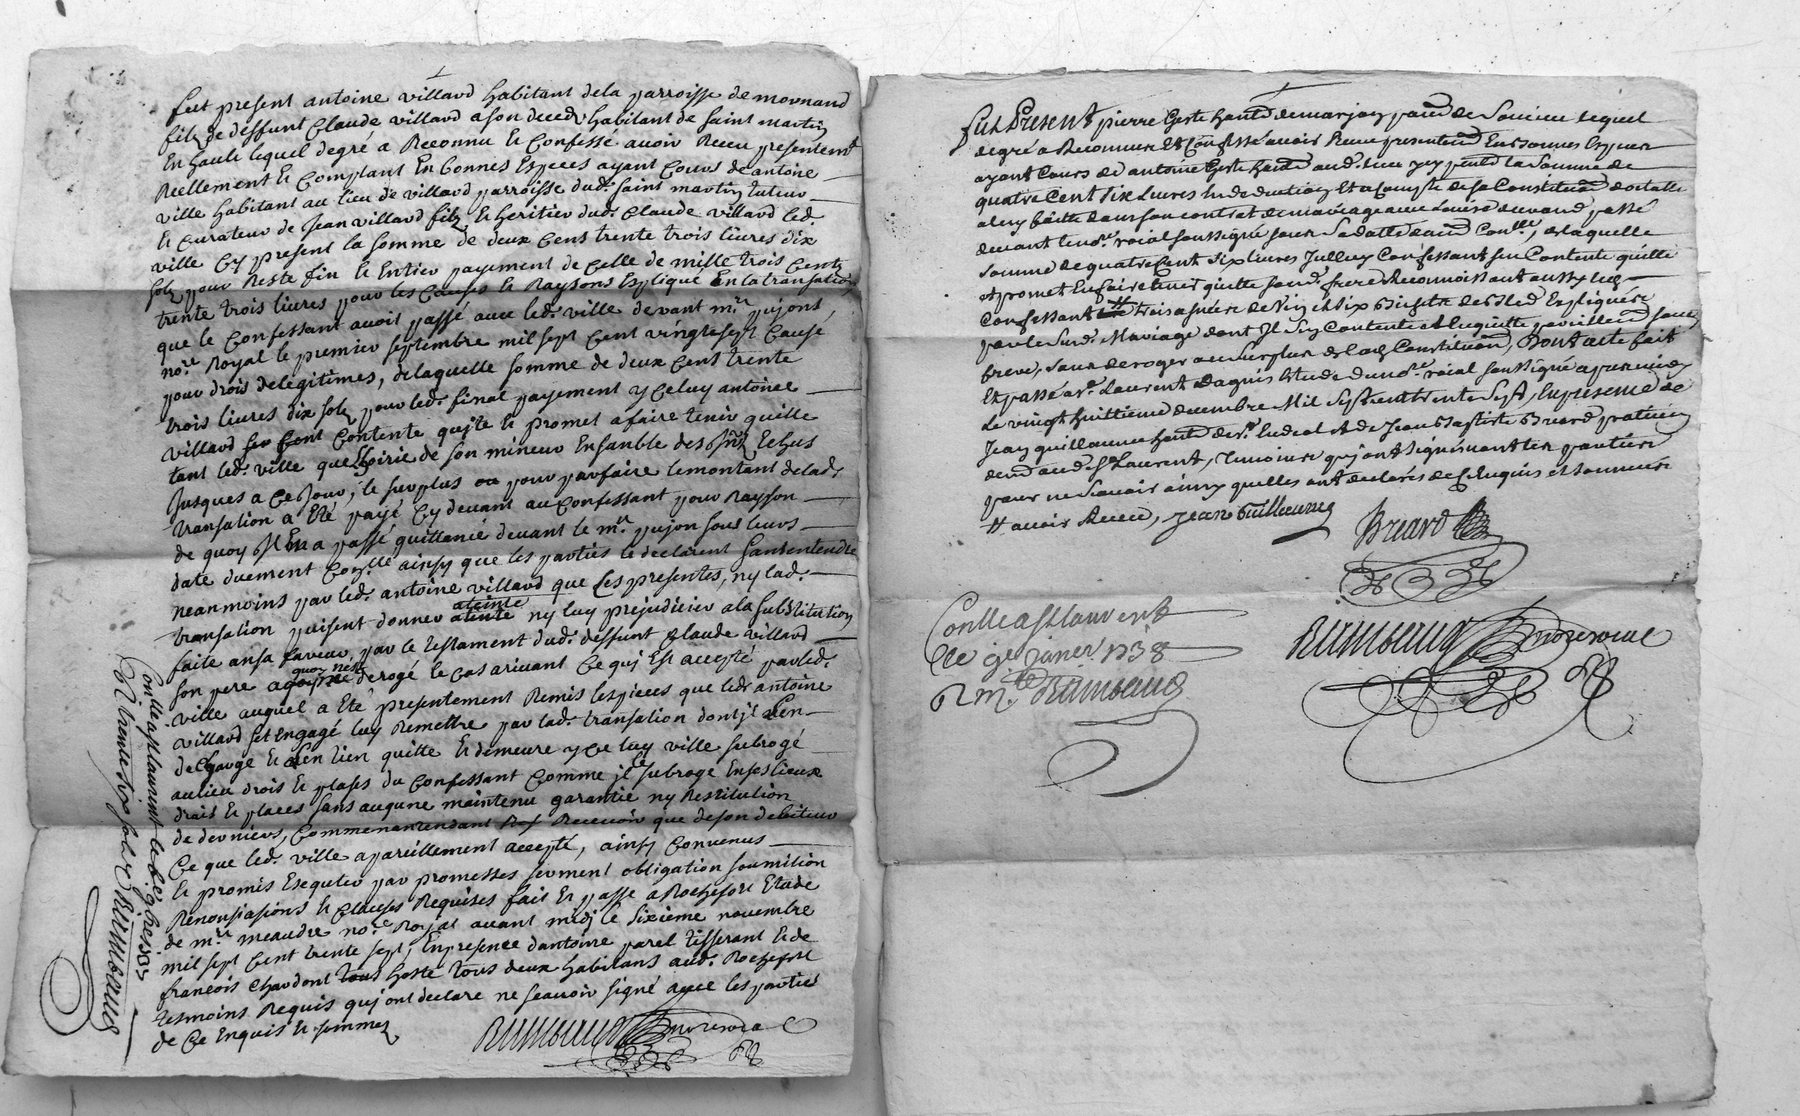 fut present antoine villard habitant dela parroisse de mornand
filz de deffunt Claude villard a son decedz habitant de saint martin
En haule lequel degré a Reconnu et Confessé avoir Receu presentemt
Reellement et Comptant En bonnes Especes ayant Cours de antoine
ville habitant au lieu de villard parroisse dud. saint martin tuteur
et Curateur de Jean villard filz et heritier dud. Claude villard led.
ville Cy present la somme de deux Cens trente trois livres dix
solz pour Reste fin et Entier payement de Celle de mille trois Centz
trente trois livres pour les Causes et Raysons Expliqué En la transation
que le Confessant avoit passé avec led. ville devant mre pujons
nore Royal le premier septembre mil sept Cent vingt sept Causé
pour drois de legitimes, de laquelle somme de deux Cent trente
trois livres dix solz pour led. final payement yceluy antoine
villard Contente quitte et promet a faire tenir quitte
tant led. ville que de son mineur Ensamble des Echus
Jusques a Ce Jour, le surplus ou pour parfaire le montant de lad.
transation a Eté payé Cy devant au Confessant pour Rayson
de quoy Il En a passé quittance devant le mre pujon sous leurs
date duement Conlle ainsy que les parties le declarent sans entendre
neanmoins par led. antoine villard que les presentes, ny lad.
transation puisent donner atteinte ny luy prejudicier a la substitution
faite an sa faveur par le testament dud. deffunt Claude villard
son pere a quoy n'est derogé le Cas arivant Ce qui Est accepté par led.
ville auquel a Eté presentement Remis les pieces que led. antoine
villard set Engagé luy Remettre par lad. transation dont il l'en
decharge et l'en tien quitte et demeure yceluy ville subrogé
au lieu drois et plases du Confessant Comme il le subroge En ses lieux
drois et places sans augune maintenu garantie ny Restitution
de deniers, Recevoir que de son debiteur
Ce que led. ville a pareillement accepté, ainsy Convenus
et promis Esequter par promesses serment obligation soumition
Renonsiasions et Clauses Requises fait et passé a Rochefort Etude
de mre meaudre nore Royal avant midy le sixieme novembre
mil sept Cent trente sept, En presence d'antoine parel tisserant et de
francois Chardont hoste tous deux habitans aud. Rochefort
tesmoins Requis qui ont declare ne scavoir signé avec les partie
de Ce Enquis et sommez
Rimbaud
Conlle a st laurent le
trente six solz Rimbaud
fut Present pierre hantd de lequel
degré a Reconnu et Confessé avoir Receu presentemt En bonnes Especes
ayant Cours de antoine la Somme de
quatre Cent dix livres En deduction Et a Compte de la Constitution dotalle
a luy faitte dans son contrat de mariage avec passé
devant le nore roial soussigné sous sa datte duemt Conllé, de laquelle
somme de quatre Cent dix livres Il Confessant sen Contente quitte
et promet En faire tenir quitte frere Reconnoissant aussy led.
Confessant # trois de
par le Sud. Mariage dont Il Sen Contente Et En quitte pareillement
sans deroger au Surplus de lad. Constitution, Dont acte fait
Et passé a st Laurent Etude du nore roial soussigné apres midy
Le vingt huittieme decembre Mil Sept Cent trente Sept, En presence de
Jean guillaume et de Jean Baptiste Breard praticien
aud. st Laurent, temoins qui ont signé non les parties
pour ne scavoir ainsy quelles ont declarés de Ce Enquis et sommées
# avoir Receu, Jean Guillaume
Breard
Conlle a st laurent
le 9e janer 1738
Rimbaud
Rimbaud nore roial